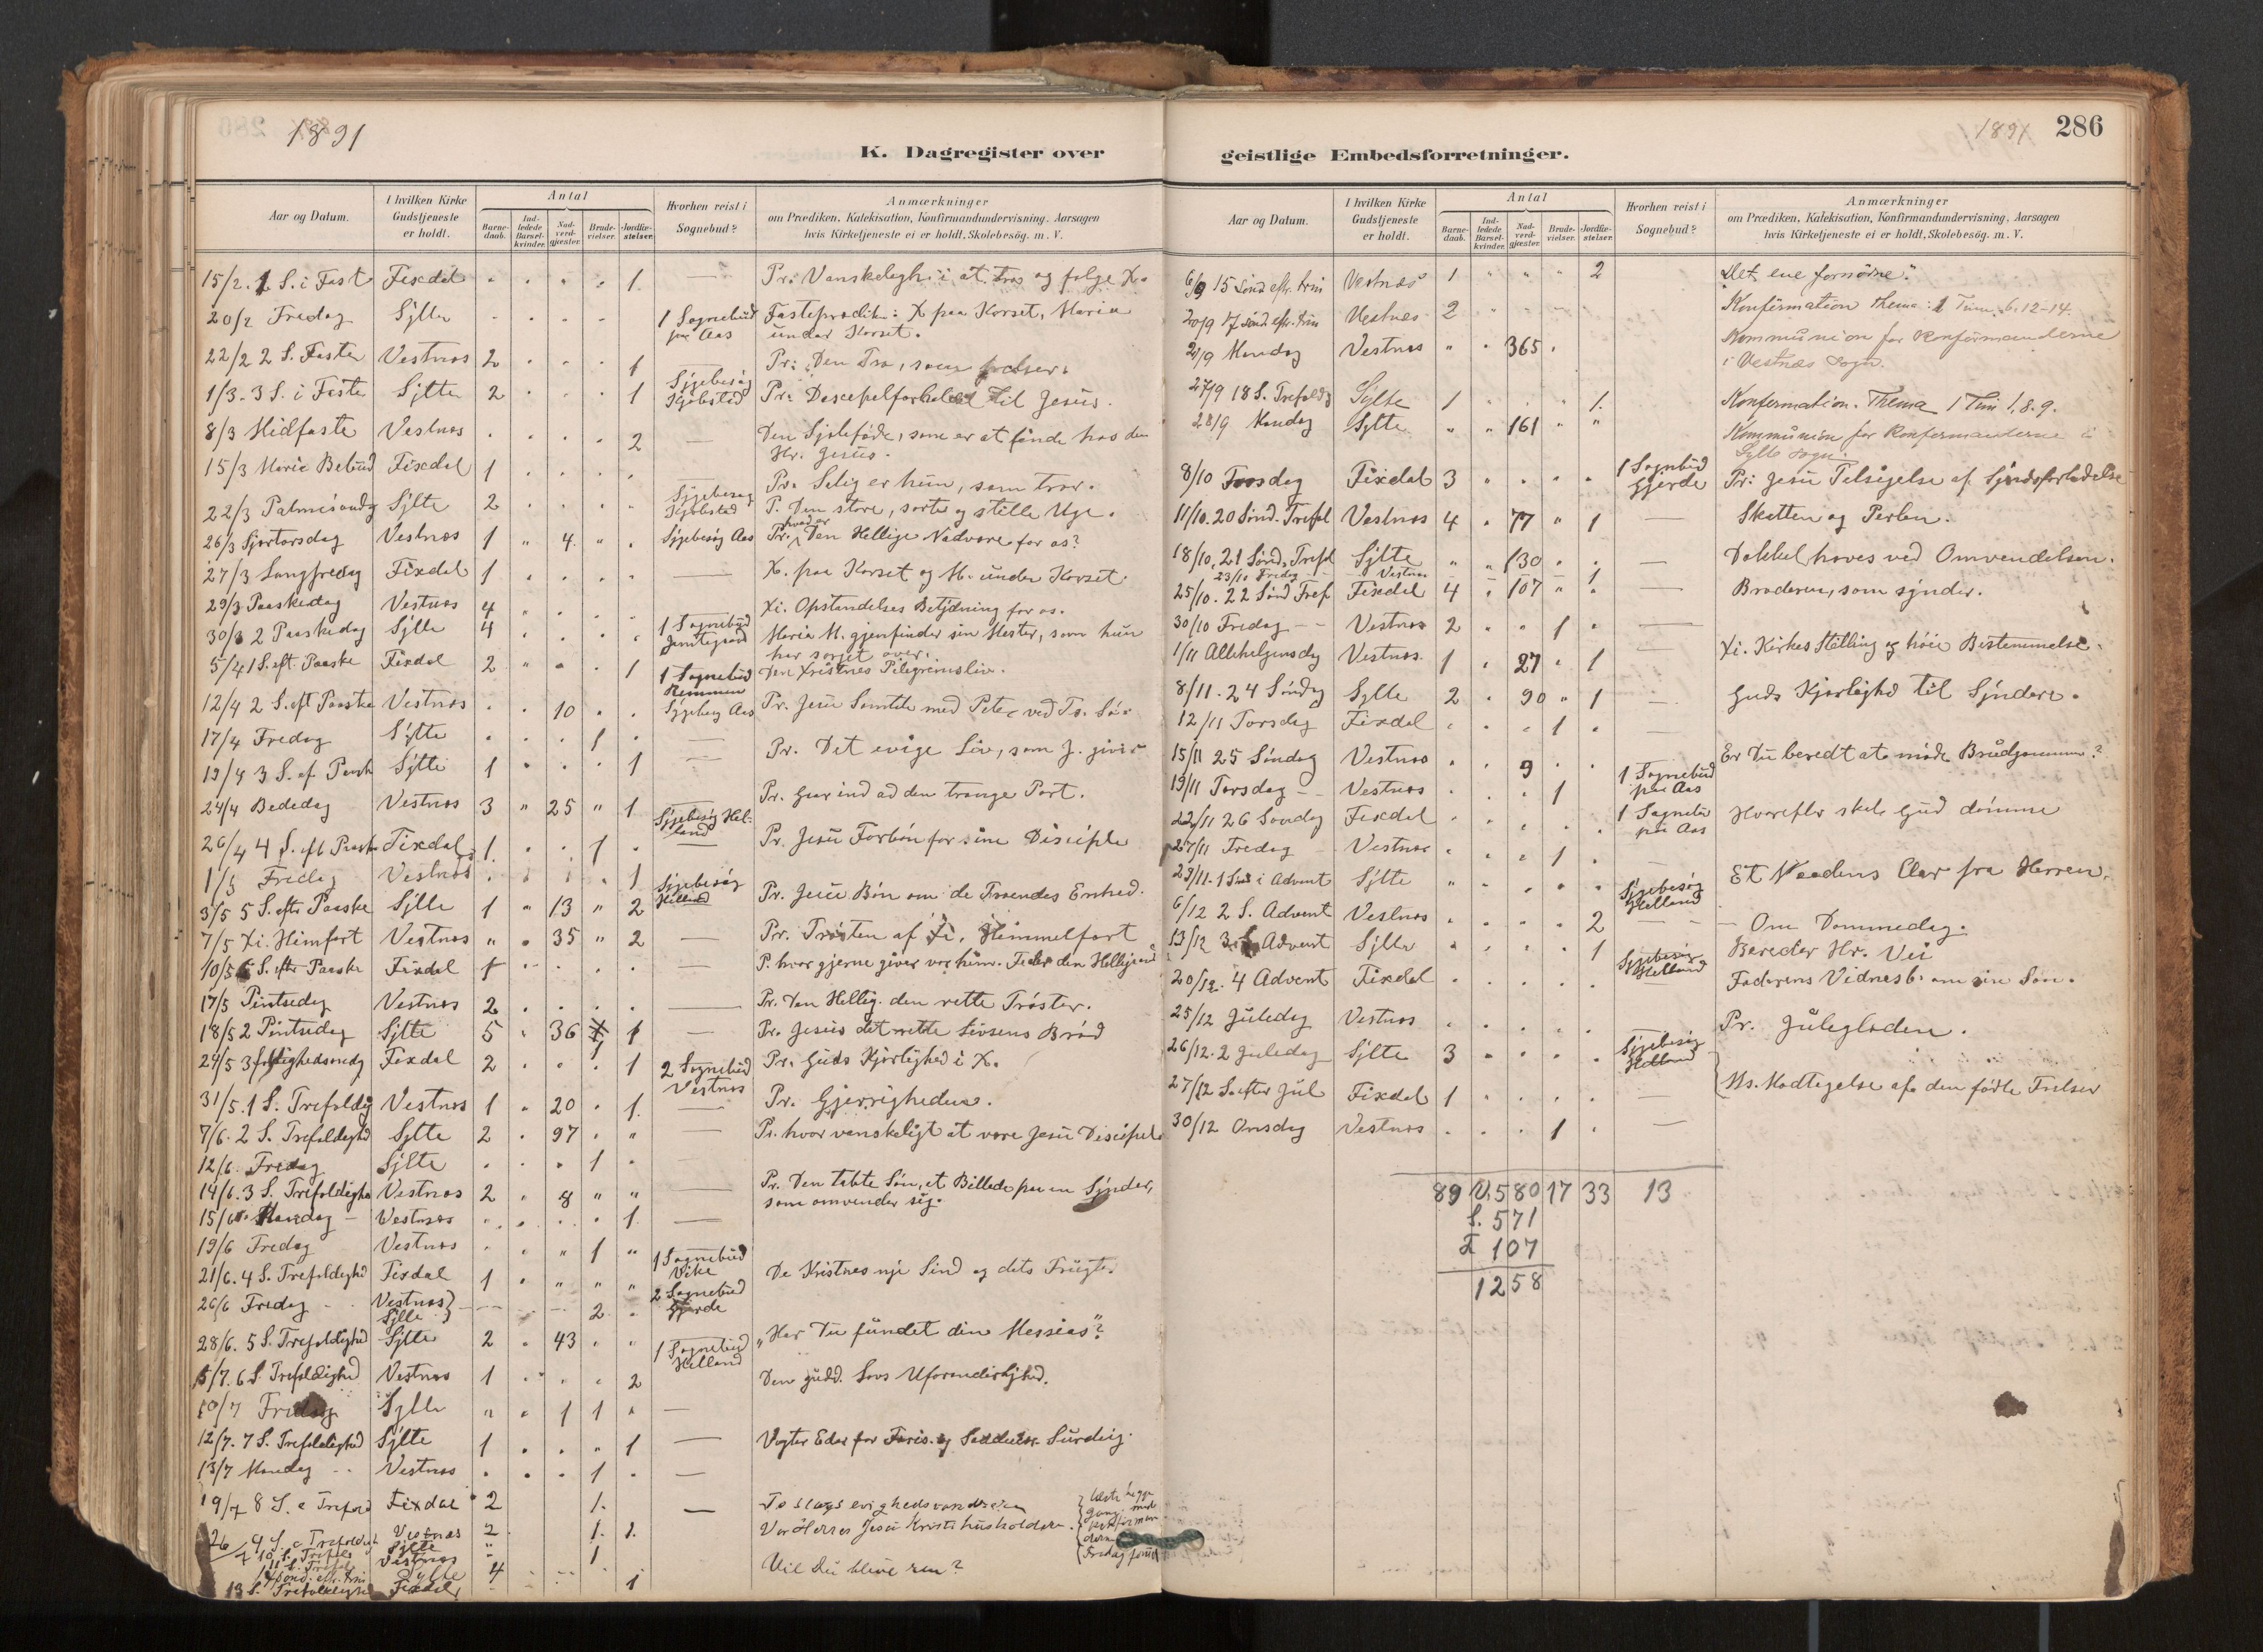 1891
K. Dagregister over
Aar og Datum. I hvilken Kirke Gudstjeneste er holdt. Antal Barnedaab. Indledede Barselkvinder. Nadverdgjæster. Brudevielser. Jordfæstelser. Hvorhen reist i Sognebud? Anmærkninger om Prædiken, Katekisation, Konfirmandundervisning. Aarsagen hvis Kirketjeneste ei er holdt, Skolebesøg. m. V.
15/2. 1 S. i Fast Fixdal " " " " 1. — Pr. Vanskeligh. i at tro og følge X.
20/2 Fredag Sylte " " " " 1 Sognebud paa Aas Fasteprædik: X paa Korset, Maria
under Korset.
22/2 2 S. Faste Vestnæs 2 " " " 1 Pr: Den Tro, som frelser.
1/3. 3 S. i Faste Sylte 2 " " " 1 Sygebesøg Kjelstad Pr: Descepelforholdet til Jesus.
8/3 Midfaste Vestnæs " " " " 2 — Den Sjæleføde, som er at finde hos den
Hr. Jesus.
15/3 Mariæ Bebud Fixdal 1 " " " " Pr. Salig er hun, som tror.
22/3 Palmesøndg Sylte 2 " " " " Sygebesøg Kjelstad P. Den store, sorte og stille Uge.
26/3 Skjærtorsdag Vestnæs 1 " 4 " " Sygebesøg Aas Pr. hvad er Den Hellige Nadvere for os?
27/3 Langfredag Fixdal 1 " " " " — X. paa Korset og M. under Korset.
29/3 Paaskedag Vestnæs 4 " " " " Xi. Opstandelses Betydning for os.
30/3 2 Paaskedag Sylte 4 " " " " 1 Sognebud Maria M. gjenfinder sin Mester, som hun
har sørget over.
5/4 1 S. eft. Paaske Fixdal 2 " " " 1 1 Sognebud Den Kristnes Pilegrimsliv.
12/4 2 S. eft Paaske Vestnæs " " 10 " " Sygebesøg Aas Pr. Jesu Samtale med Peter ved Ti. Sø.
17/4 Fredag Sylte " " " 1 " —
19/4 3 S. ef. Paask Sylte 1 " " " 1 — Pr. Det evige Liv, som J. giver
24/4 Bededag Vestnæs 3 " 25 " 1 Pr. Gaar ind ad den trange Port.
26/4 4 S. eft Paaske Fixdal 1. " " 1 " Sygebesøg Helland — Pr. Jesu Forbøn for sine Disciple
1/5 Fredag Vestnæs " " " " 1
3/5 5 S. efter Paaske Sylte 1 " 13 " 2 Sygebesøg Helland Pr. Jesu Bøn om de Troendes Enhed.
7/5 Xi. Himfart Vestnæs " " 35 " 2 — Pr. Trøsten af Xi. Himmelfart
10/5 6 S. efter Paaske Fixdal 1 " " " " — P. hvor gjerne giver vor himm. Fader den Helligaand
17/5 Pintsedag Vestnæs 2 " " " " — Pr. Den Hellig. den rette Trøster.
18/5 2 Pintsedag Sylte 5 " 36 1 — Pr. Jesus det rette Livsens Brød
24/5 3foldighedssøndg Fixdal 2 " " 1 1 2 Sognebud Vestnæs Pr. Guds Kjærlighed i X.
31/5. 1 S. Trefoldig Vestnæs 1 " 20 " 1. — Pr. Gjerrigheden.
7/6. 2 S. Trefoldighd Sylte 2 " 97 " " — Pr. hvor vanskeligt at være Jesu Discipel
12/6. Fredag Sylte " " " 1 " —
14/6. 3 S. Trefoldighe Vestnæs 2 " 8 " " — Pr. Den tabte Søn, et Billede paa en Synder,
som omvender sig.
15/6. Mandag — Vestnæs " " " " 1. —
19/6 Fredag Vestnæs " " " 1 "
21/6. 4 S. Trefoldighd Fixdal 1 " " " " 1 Sognebud Vike De Kristnes nye Sind og dets Frugter
26/6 Fredag Vestnæs } Sylte } 2 " 2 Sognebud Gjerde
28/6. 5 S. Trefoldighed Sylte 2 " 43 " " 1 Sognebud Helland „Har Du fundet din Messias"?
5/7. 6 S. Trefoldighed Vestnæs 1 " " " 2 Den gudd. Lovs Uforanderlighed.
10/7 Fredag Sylte " " 1 1 " —
12/7. 7 S. Trefoldighed Sylte 1 " " " 1 — Vogter Eder for Faris. og Sadducæ. Surdeig.
13/7 Mandag Vestnæs " " " 1 " —
19/7 8 S. e Trefold Fixdal 2 1. — To slags evighedsvandrere
26/7 9 S. e Trefoldigh Vestnæs 2 1. 1. Vor Herres Jesu Kristi husholdere.
10 S. Trefold Sylte "
11 S. Trefol Vestnæs 1
Sønd. eftr. trin Sylte 4 Vil Du blive ren?
13 S. Trefoldighed Fixdal 1
286
1891
geistlige Embedsforretninger.
Aar og Datum. I hvilken Kirke Gudstjeneste er holdt. Antal Barnedaab. Indledede Barselkvinder. Nadverdgjæster. Brudevielser. Jordfæstelser. Hvorhen reist i Sognebud? Anmærkninger om Prædiken, Katekisation, Konfirmandundervisning, Aarsagen hvis Kirketjeneste ei er holdt, Skolebesøg. m. V.
6/9 15 Sønd eftr. trin Vestnæs 1 " " " 2 „Det ene fornødne".
20/9 17 Sønd eftr. trin Vestnæs 2 " " " Konfirmation Thema: 1 Tim. 6. 12-14.
21/9 Mandag Vestnæs " " 365 " Kommunion for Konfirmanderne
i Vestnæs Sogn.
27/9 18 S. Trefoldg Sylte 1 " " " 1. Konfermation. Thema 1 Tim 1. 8. 9.
28/9 Mandag Sylte " " 161 " " Kommunion for Konfermanderne i
Sylte sogn.
8/10 Torsdag Fixdal 3 " " " " 1 Sognebud Gjerde Pr: Jesu Tilsigelse af Syndsforladelse
11/10. 20 Sønd. Trefol Vestnæs 4 " 77 " 1 — Skatten og Perlen.
18/10. 21 Sønd. Trefl Sylte " " 130 " " — Dobbel haves ved Omvendelsen.
23/10 Fredag Vestnæs 1
25/10. 22 Sønd Tref Fixdal 4 " 107 " " — Broderen, som synder.
30/10 Fredag Vestnæs 2 " " 1 " —
1/11 Allehelgensdg Vestnæs. 1 " 27 " 1 — Xi. Kirkes Stilling og høie Bestemmelse.
8/11. 24 Søndg Sylte 2 " 90 " 1 — Guds Kjærlighed til Syndere.
12/11 Torsdag Fixdal " " " 1 " —
15/11 25 Søndag Vestnæs " " 9 " " Er Du beredt at møde Brudgommen?
19/11 Torsdag Vestnæs " " " 1 1 Sognebud paa Aas
22/11 26 Søndag Fixdal " " " " " 1 Sognebu paa Aas Hvorefter skal Gud dømme
27/11 Fredag Vestnæs " " " 1 " —
29/11. 1 Sønd i Advent Sylte " " " " " Et Naadens Aar fra Herren.
6/12 2 S. Advent Vestnæs " " " " 2 Sygebesøg Helland — Om Dommedag.
13/12 3 S. Advent Sylte " " " " 1 — Bereder Hr. Vei
20/12. 4 Advent Fixdal " " " " " Sygebesøg Helland Faderens Vidnesb. om sin Søn.
25/12 Juledag Vestnæs " " " " " — Pr. Juleglæden.
26/12. 2 Juledag Sylte 3 " " " " Sygebesøg Helland
27/12 S. efter Jul Fixdal 1 " " " " — Ms. Modtagelse af den fødte Frelser
30/12 Onsdag Vestnæs " " " 1 " —
89 V. 580 17 33 13
S. 571
F 107
1258